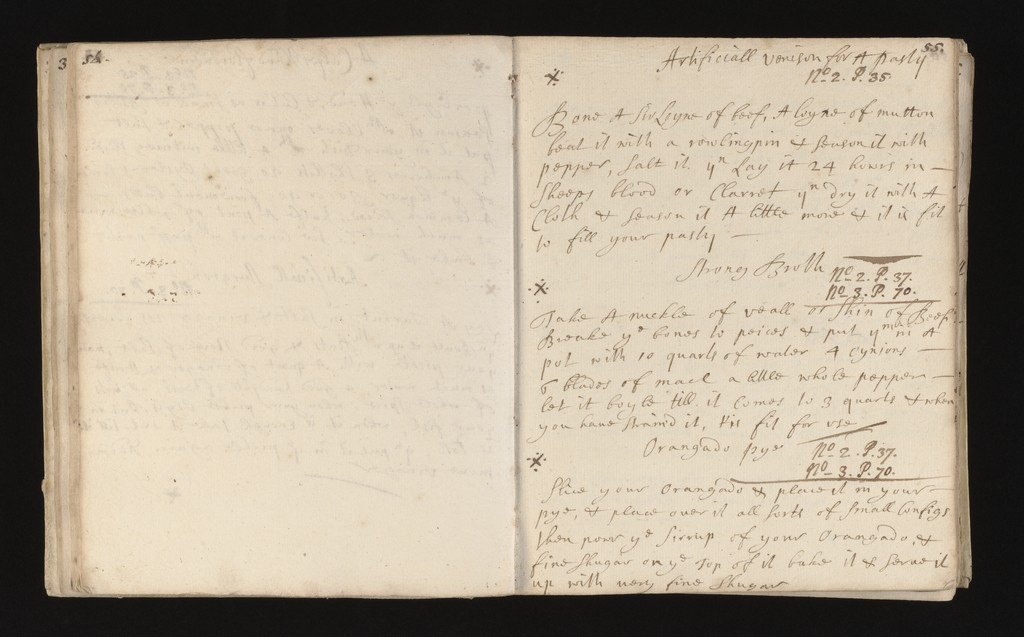 3
54.
55.
Artificiall venison for A pasty
No. 2. P. 35.
Bone A Sirloyne of beef, A loyne of mutton
beat it with a rowlingpin & season it with
pepper, salt it yn Lay it 24 howrs in
sheeps blood or Clarret yn dry it with A
Cloth & season it A little more & it is fit
to fill your pasty
Strong Broth No. 2. P. 37.
No. 3. P. 70.
Take A nuckle of veall or Shin of Beef
Breake ye bones to peices & put ym in A
pot with 10 quarts of water 4 oynions
6 blades of mace a little whole pepper
let it boyle till it Comes to 3 quarts & when
you have straind it, tis fit for vse
Orangado pye No. 2. P. 37.
No. 3. P. 70.
Slice your Orangado & place it in your
pye, & place over it all sorts of small Configs
then powr ye sirrup of your Orangado, &
fine shugar on ye top of it bake it & serve it
up with very fine shugar